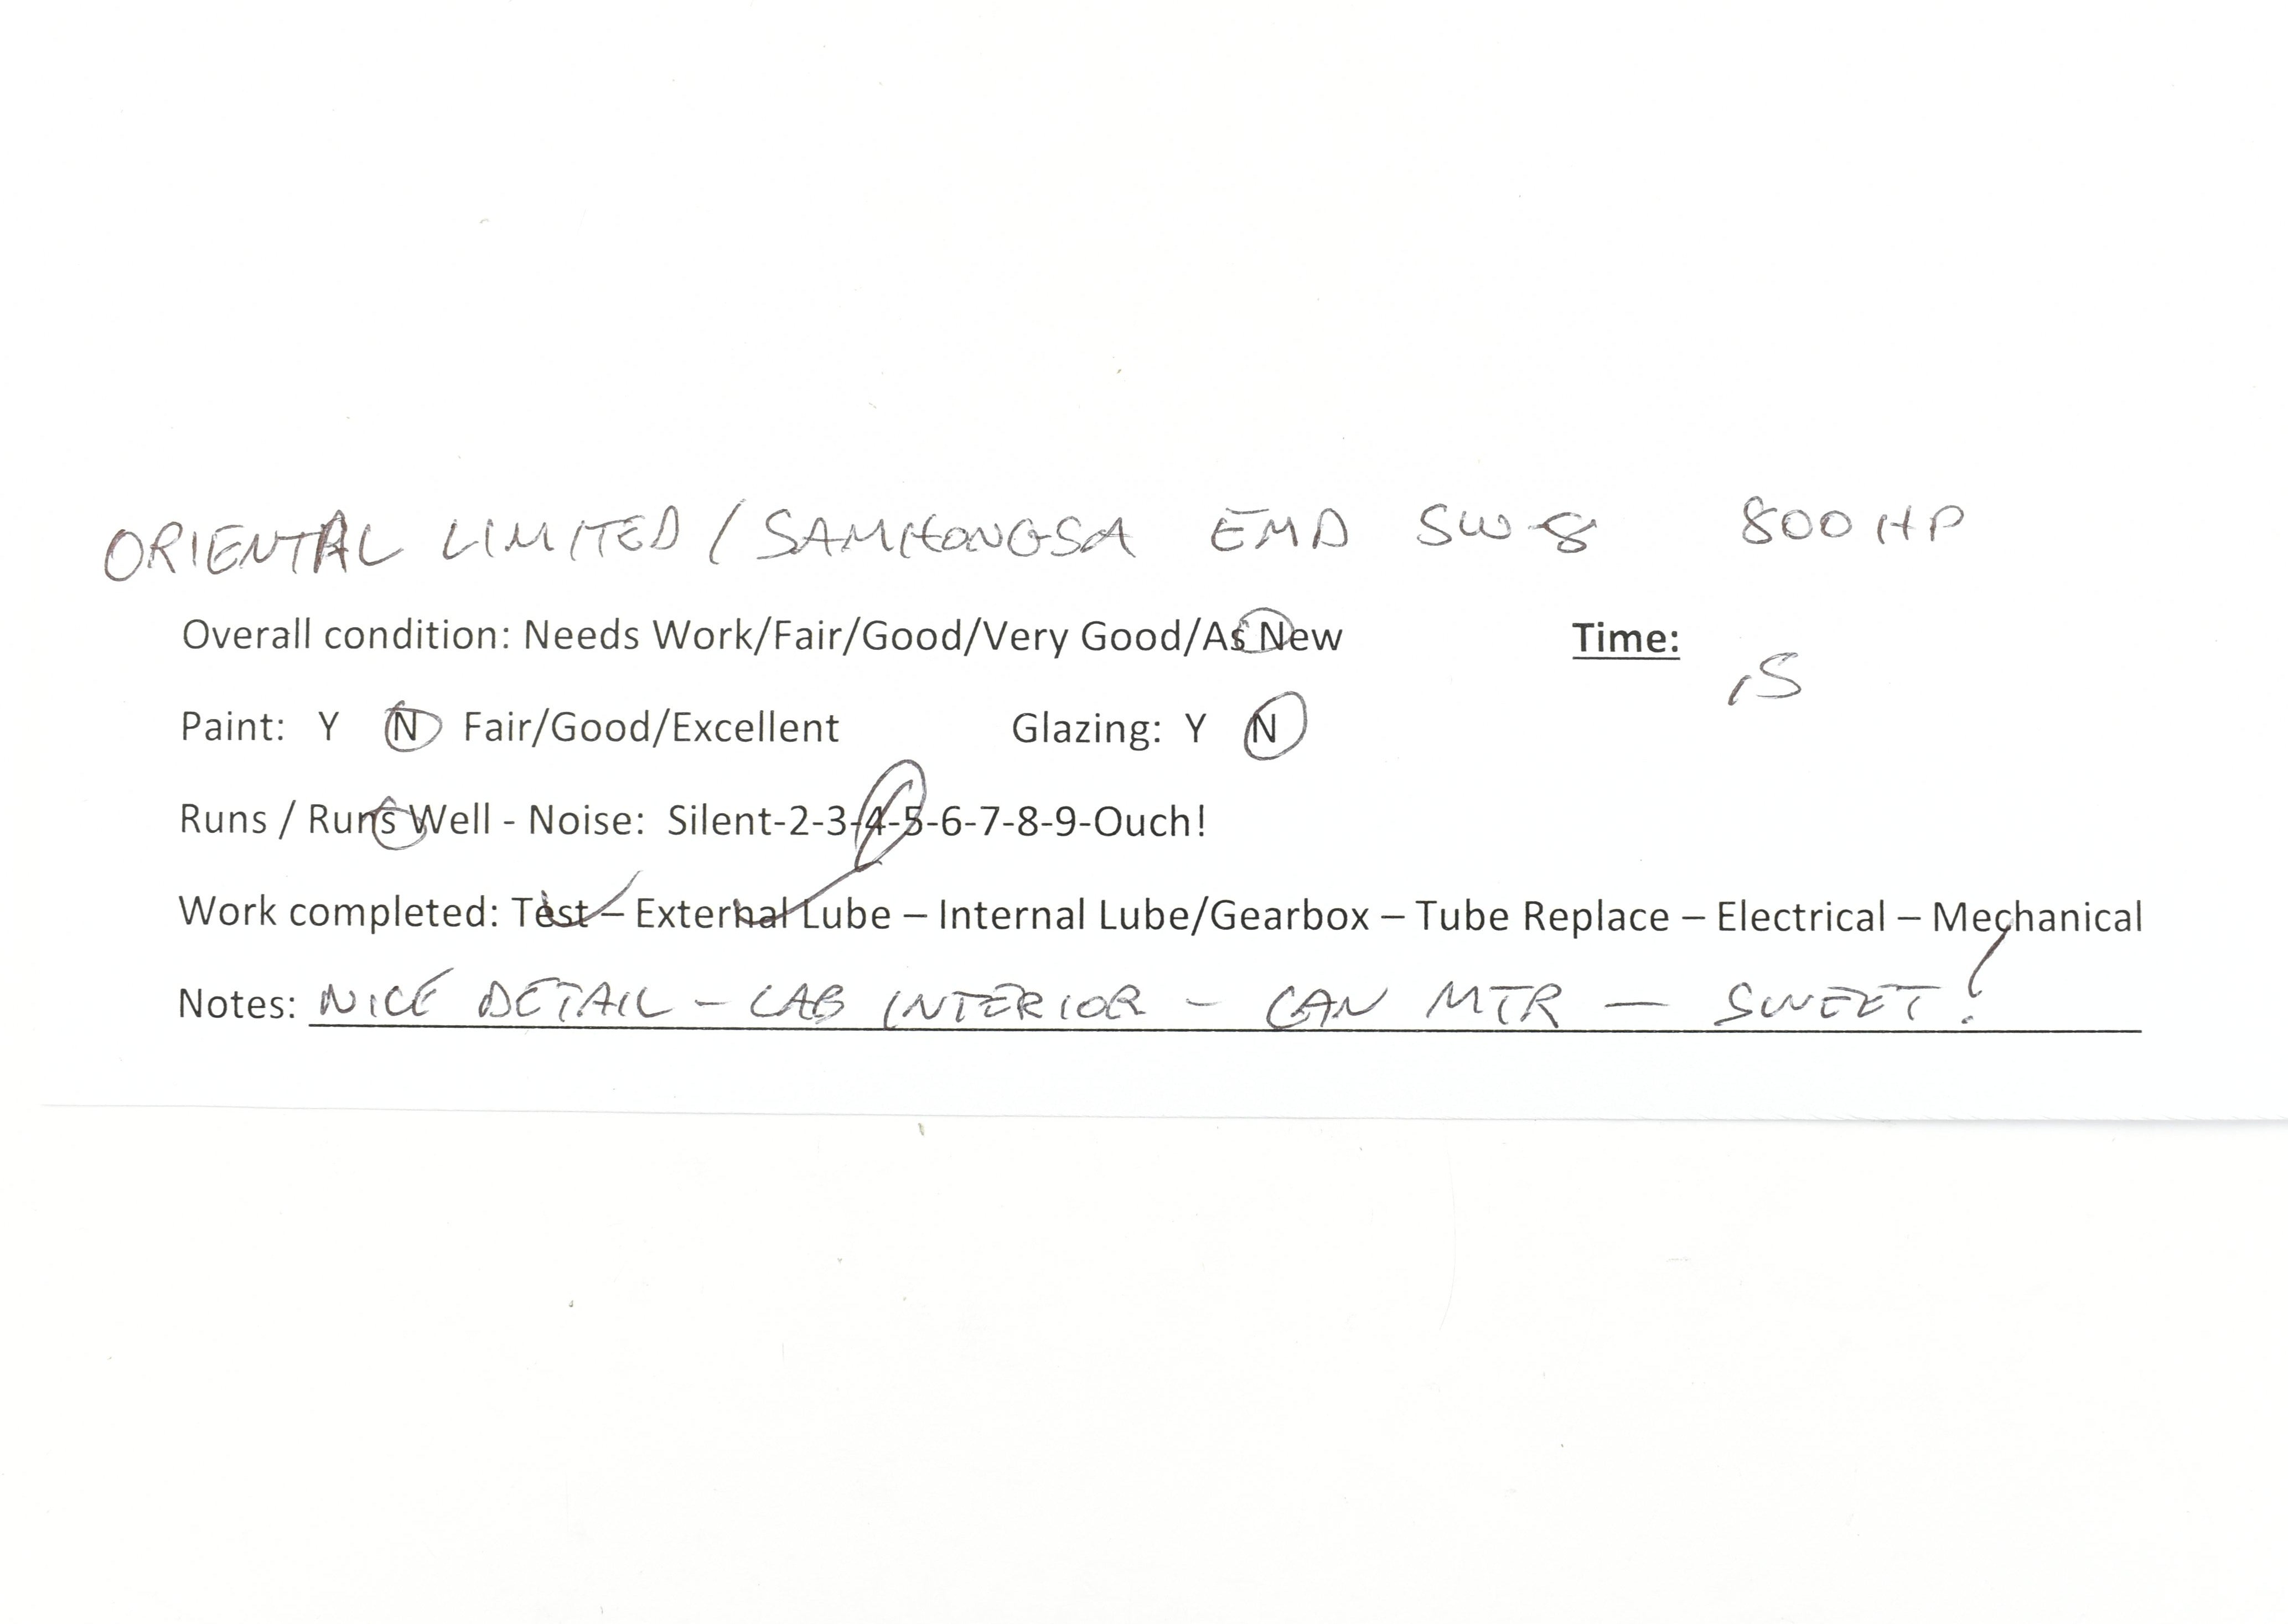 ORIENTAL LIMITED / SAMHONGSA EMD SW-8 800 HP
Overall condition: Needs Work/Fair/Good/Very Good/As New Time:
.5
Paint: Y N Fair/Good/Excellent Glazing: Y N
Runs / Runs Well - Noise: Silent-2-3-4-5-6-7-8-9-Ouch!
Work completed: Test – External Lube – Internal Lube/Gearbox – Tube Replace – Electrical – Mechanical
Notes: NICE DETAIL - CAB INTERIOR - CAN MTR - SWEET!